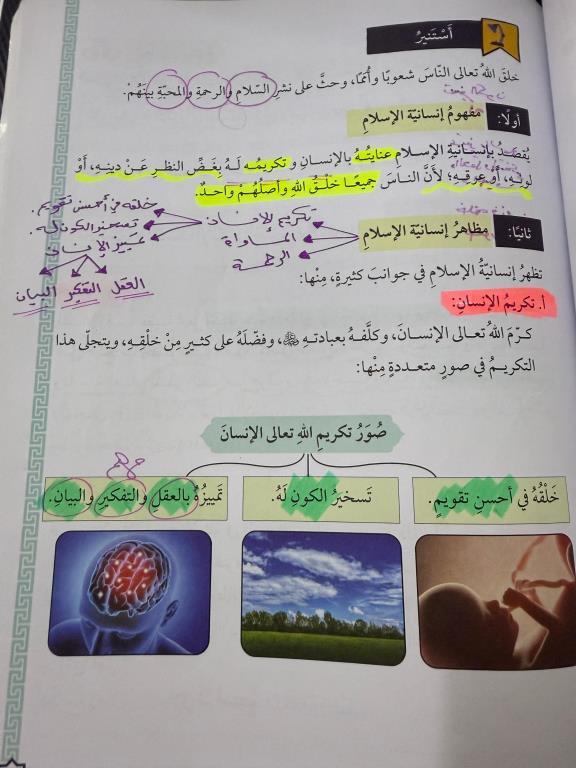 أَسْتَنيرُ
خلقَ اللهُ تعالى النّاسَ شعوبًا وأُممًا، وحثَّ على نشرِ السّلامِ والرحمةِ والمحبّةِ بينَهُمْ.
أولًا: مفهومُ إنسانيّة الإسلامِ
يُقصَدُ بإنسانيّةِ الإسلامِ عنايتُهُ بالإنسانِ وتكريمُه لَهُ بِغَضِّ النظرِ عَنْ دينِهِ، أوْ
لونِهِ، أو عرقِهِ؛ لأنَّ الناسَ جميعًا خلْقُ اللهِ وأصلُهُمْ واحدٌ.
خلقه في أحسن تقويم.
تكريم الإنسان
تسخير الكون له.
المساواة
تمييز الإنسان
الرحمة
ثانيًا: مظاهرُ إنسانيّة الإسلامِ
العقل التفكير البيان
تظهرُ إنسانيّةُ الإسلامِ في جوانبَ كثيرةٍ، مِنْها:
أ. تكريمُ الإنسانِ:
كرّمَ اللهُ تعالى الإنسانَ، وكلَّفَهُ بعبادتهِ ﷻ، وفضّلَهُ على كثيرٍ مِنْ خلْقِهِ، ويتجلّى هذا
التكريمُ في صورٍ متعددةٍ مِنْها:
صُوَرُ تكريمِ اللهِ تعالى الإنسانَ
خَلْقُهُ في أحسنِ تقويمٍ.
تَسخيرُ الكونِ لَهُ.
تَمييزُهُ بالعقلِ والتفكيرِ والبيانِ.